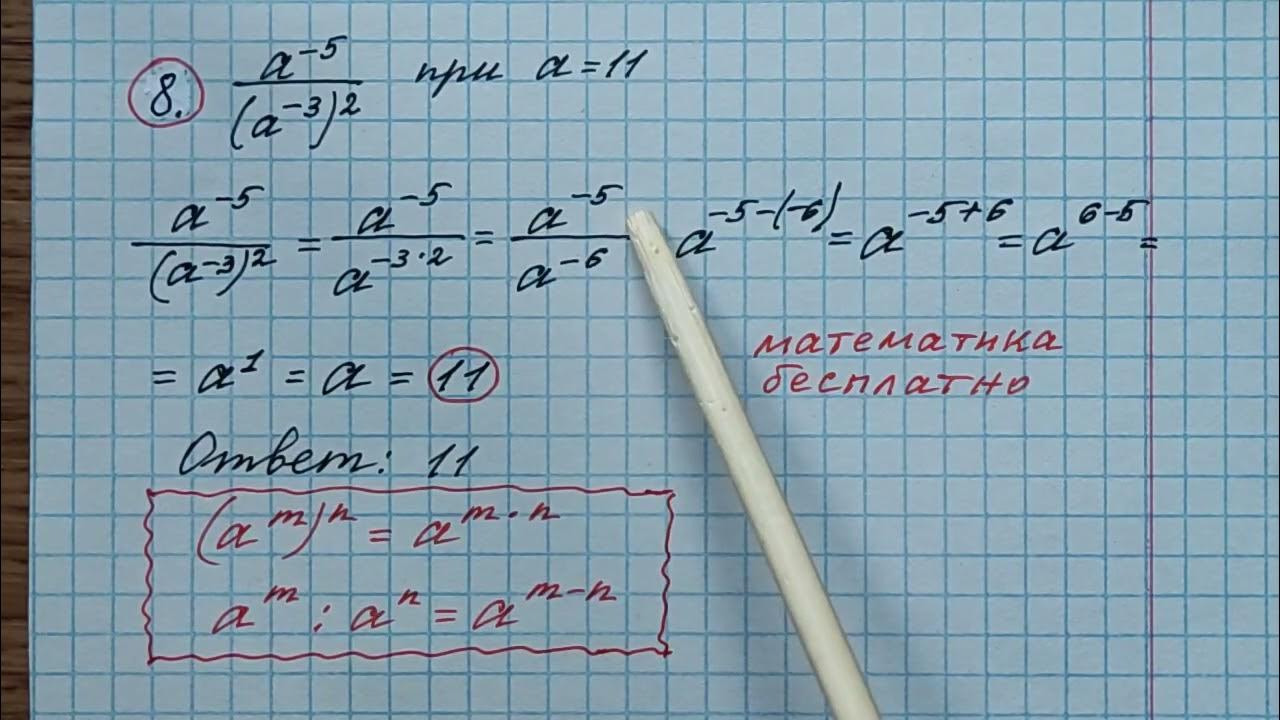 8. a⁻⁵/(a⁻³)² при a=11
a⁻⁵/(a⁻³)² = a⁻⁵/a⁻³·² = a⁻⁵/a⁻⁶ a⁻⁵⁻⁽⁻⁶⁾ = a⁻⁵⁺⁶ = a⁶⁻⁵ =
= a¹ = a = 11
математика
бесплатно
Ответ: 11
(aᵐ)ⁿ = aᵐ·ⁿ
aᵐ : aⁿ = aᵐ⁻ⁿ